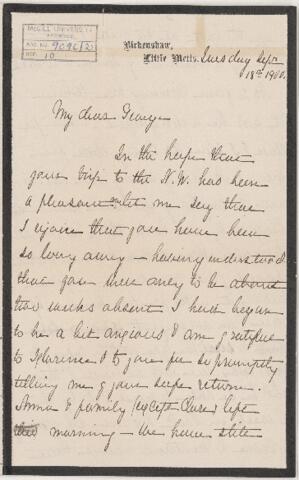 McGILL UNIVERSITY
ARCHIVES
ACC. NO. 9096/2
REF. 10
Birkenshaw,
Little Metis. Tuesday Sepr
18th 1900.
My dear George
In the hope that
your trip to the N.W. has been
a pleasant one let me say that
I rejoice that you have been
so long away - having understood
that you were only to be about
two weeks absent I had begun
to be a bit anxious & am grateful
to Florence & to you for so promptly
telling me of your safe return.
Anna & family (except Clare) left
this morning - we have still